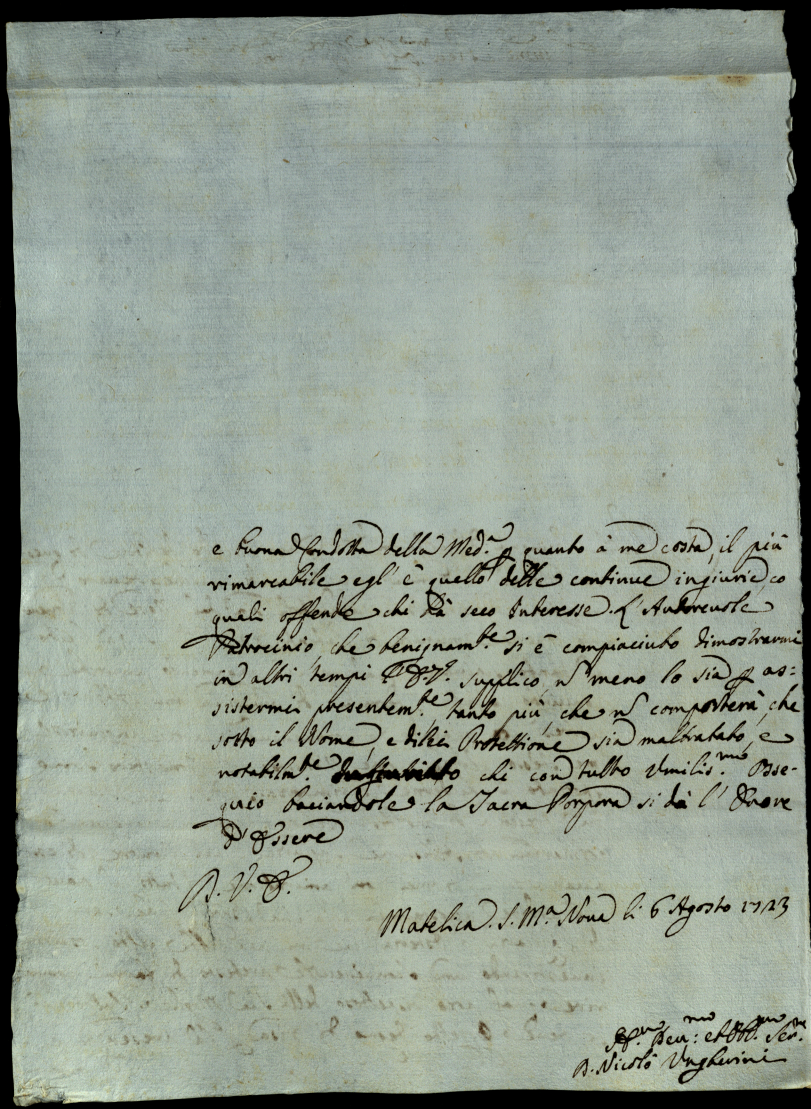 e buona condotta della Med.ª p quanto à me costa, il più
rimarcabile egl' è quello delle continue ingiurie, co
quali offende chi dà seco Interesse. L'Autorevole
Patrocinio, che benignam.te si è compiaciuto dimostrarmi
in altri tempi supplico, nº meno lo sia p as=
sistermi presentem.te, tanto più, che nº comporterà, che
sotto il Nome, e di lei Protettione sia maltratato, e
notabilm.te chi con tutto Umilis.mo Osse-
quio baciandole la Sacra Porpora si dà l' Onore
d'Essere
D. V. E.
Matelica. S. M.ª Nova li 6 Agosto 1723
Dev.mo et Obb.mo Ser.re
D. Nicolò Ungherini